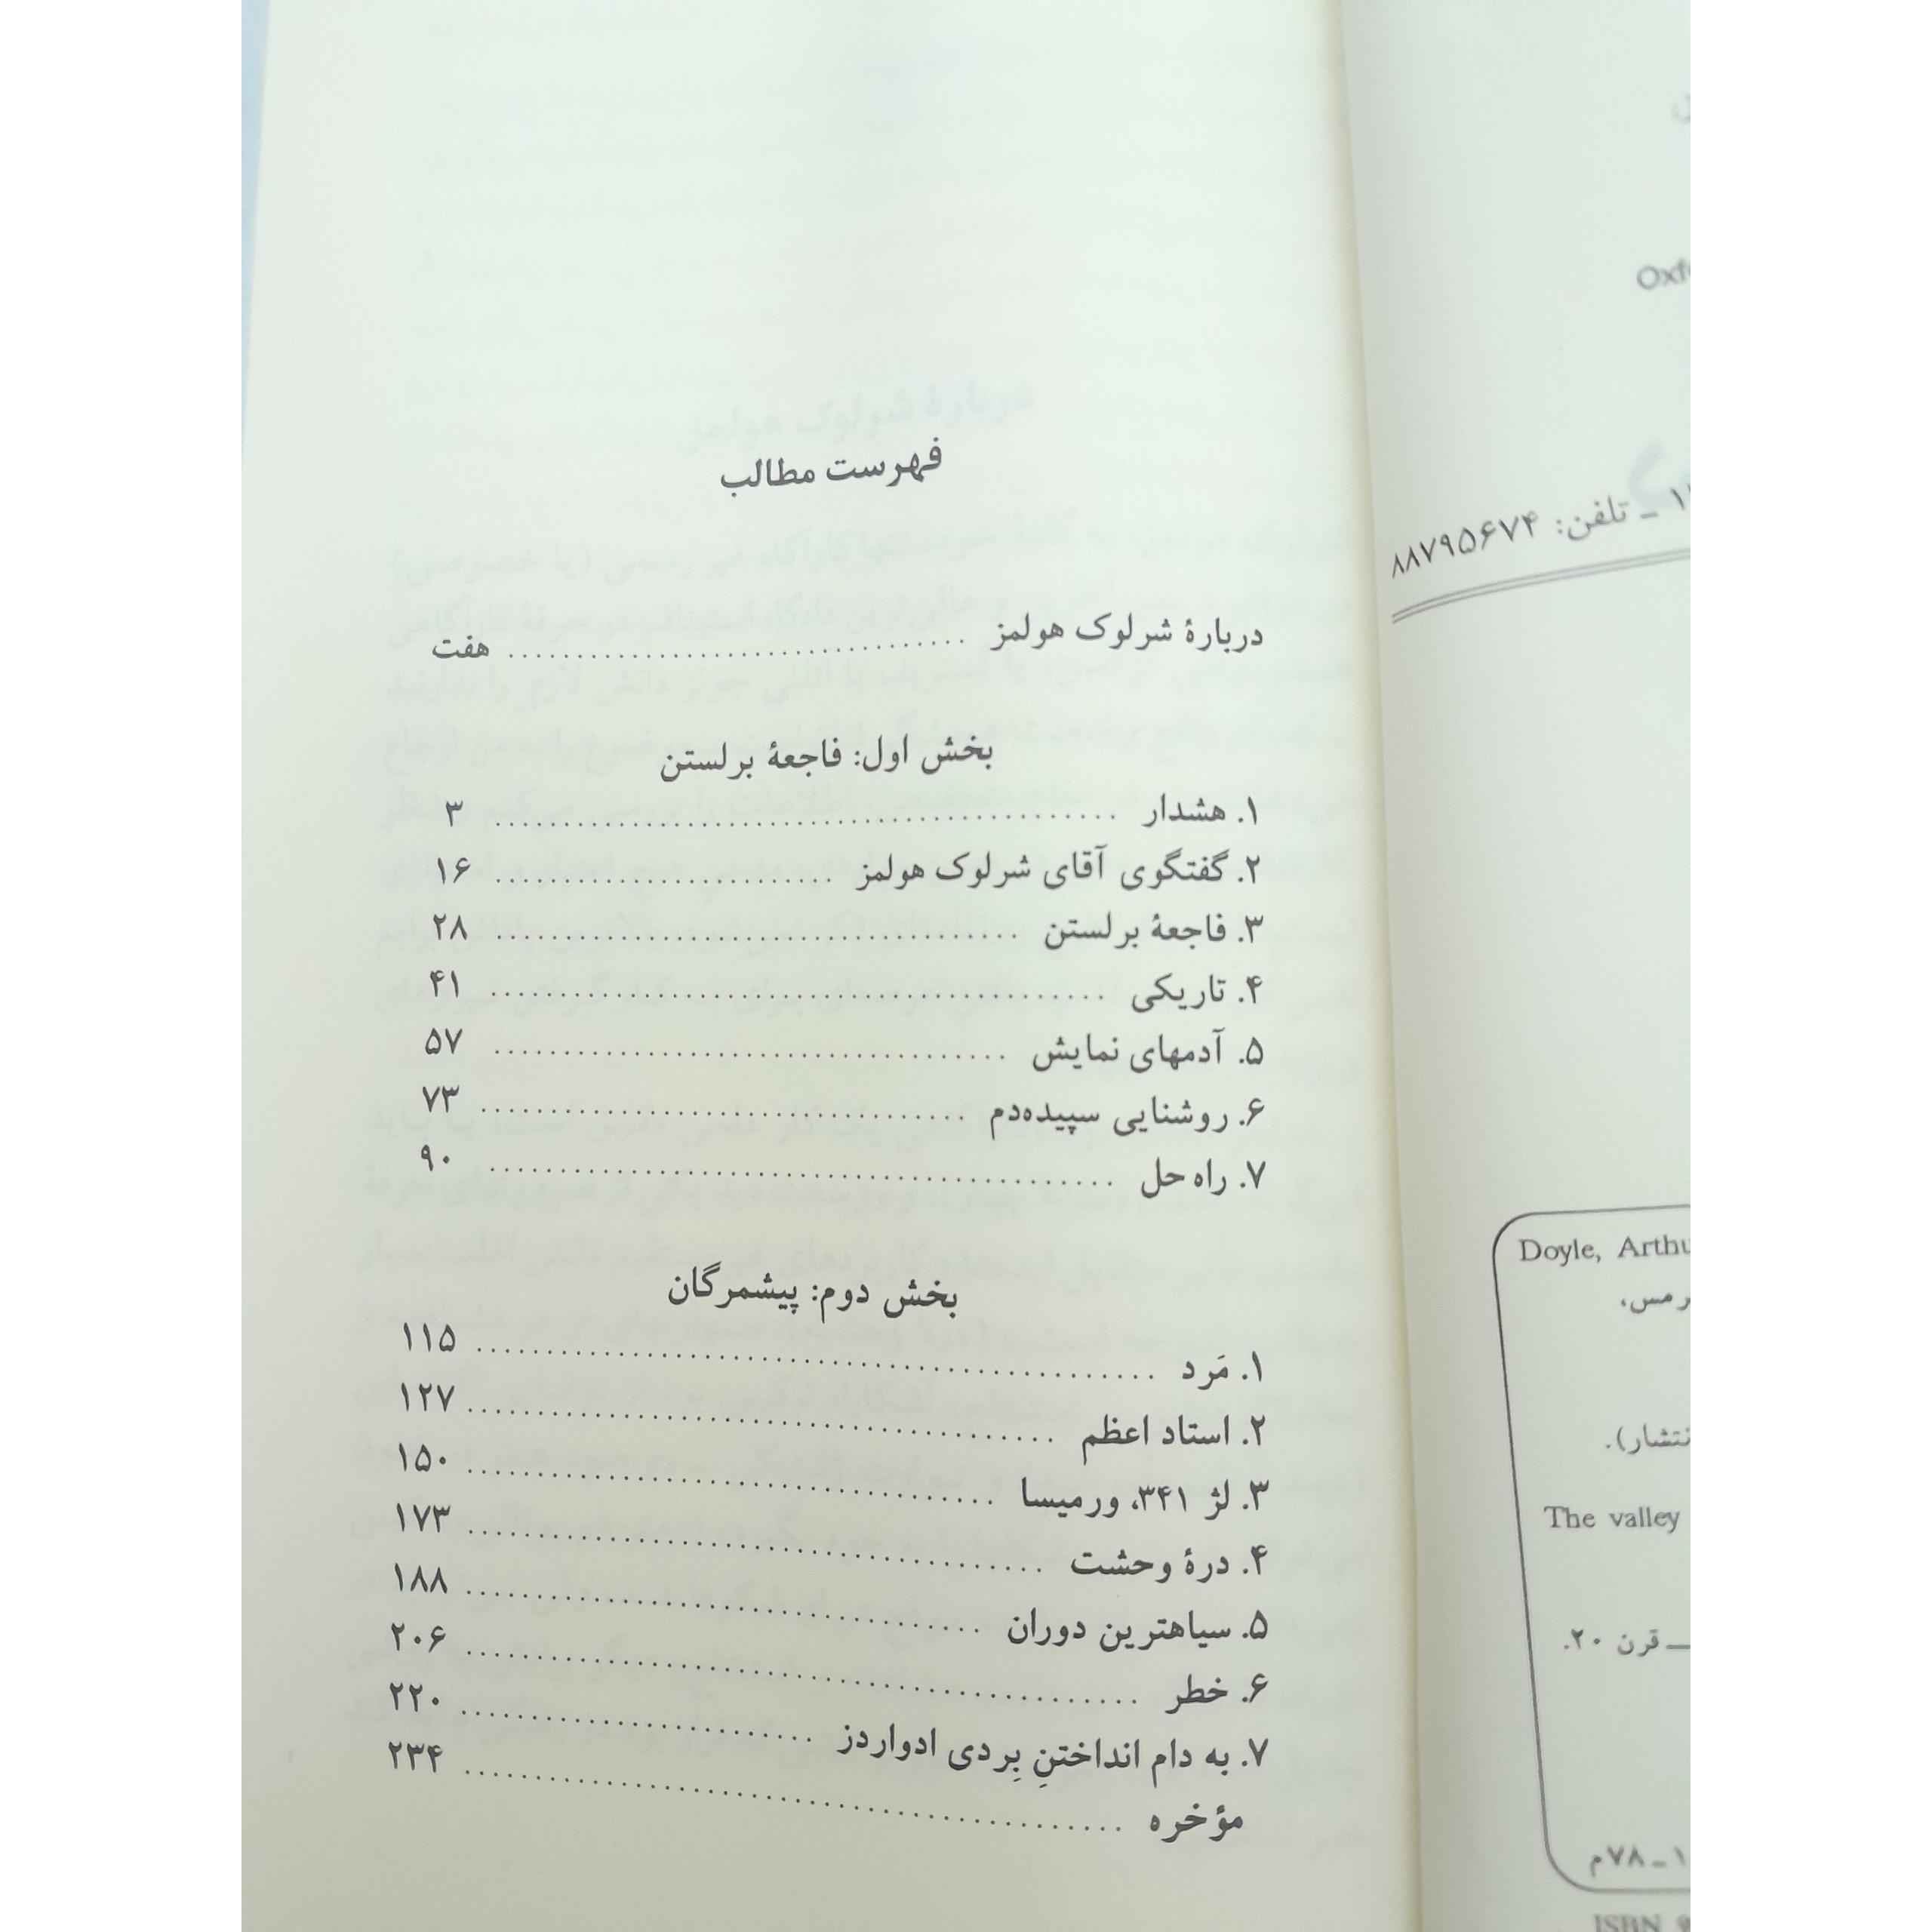 فهرست مطالب
دربارهٔ شرلوک هولمز ........ هفت
بخش اول: فاجعهٔ برلستن
۱. هشدار ........ ۳
۲. گفتگوی آقای شرلوک هولمز ........ ۱۶
۳. فاجعهٔ برلستن ........ ۲۸
۴. تاریکی ........ ۴۱
۵. آدمهای نمایش ........ ۵۷
۶. روشنایی سپیده‌دم ........ ۷۳
۷. راه حل ........ ۹۰
بخش دوم: پیشمرگان
۱. مَرد ........ ۱۱۵
۲. استاد اعظم ........ ۱۲۷
۳. لژ ۳۴۱، ورمیسا ........ ۱۵۰
۴. درهٔ وحشت ........ ۱۷۳
۵. سیاهترین دوران ........ ۱۸۸
۶. خطر ........ ۲۰۶
۷. به دام انداختنِ بِردی ادواردز ........ ۲۲۰
مؤخره ........ ۲۳۴
تلفن: ۸۸۷۹۵۶۷۴
Doyle,
The valley
قرن ۲۰.
ISBN